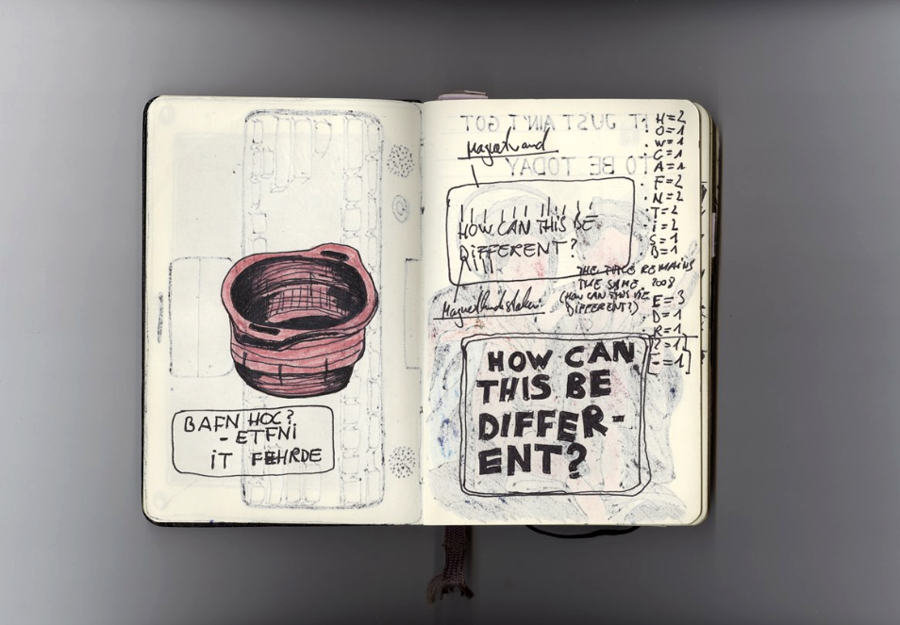 BAFN HOC?
- ETFNi
iT FEHRDE
iT JUST AIN'T GOT
TO BE TODAY
HOW CAN THiS BE
DiFFERENT?
THE TITLE REMAINS
THE SAME, 2008
(HOW CAN THIS BE
DIFFERENT?)
HOW CAN
THIS BE
DIFFER-
ENT?
H=2
O=1
W=1
C=1
A=1
F=2
N=2
T=2
i=2
S=1
B=1
E=3
D=1
R=1
?=1